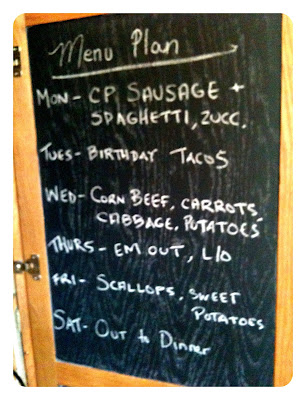 Menu Plan
MON- CP SAUSAGE +
SPAGHETTI, ZUCC.
TUES- BIRTHDAY TACOS
WED- CORN BEEF, CARROTS,
CABBAGE, POTATOES
THURS- EM OUT, L/O
FRI- SCALLOPS, SWEET
POTATOES
SAT- OUT to DINNER